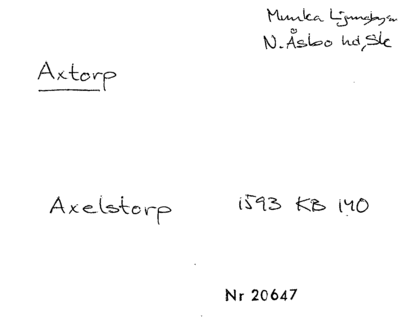 Munka Ljungby sn
N. Åsbo hd, Sk
Axtorp
Axelstorp 1593 KB 140
Nr 20647